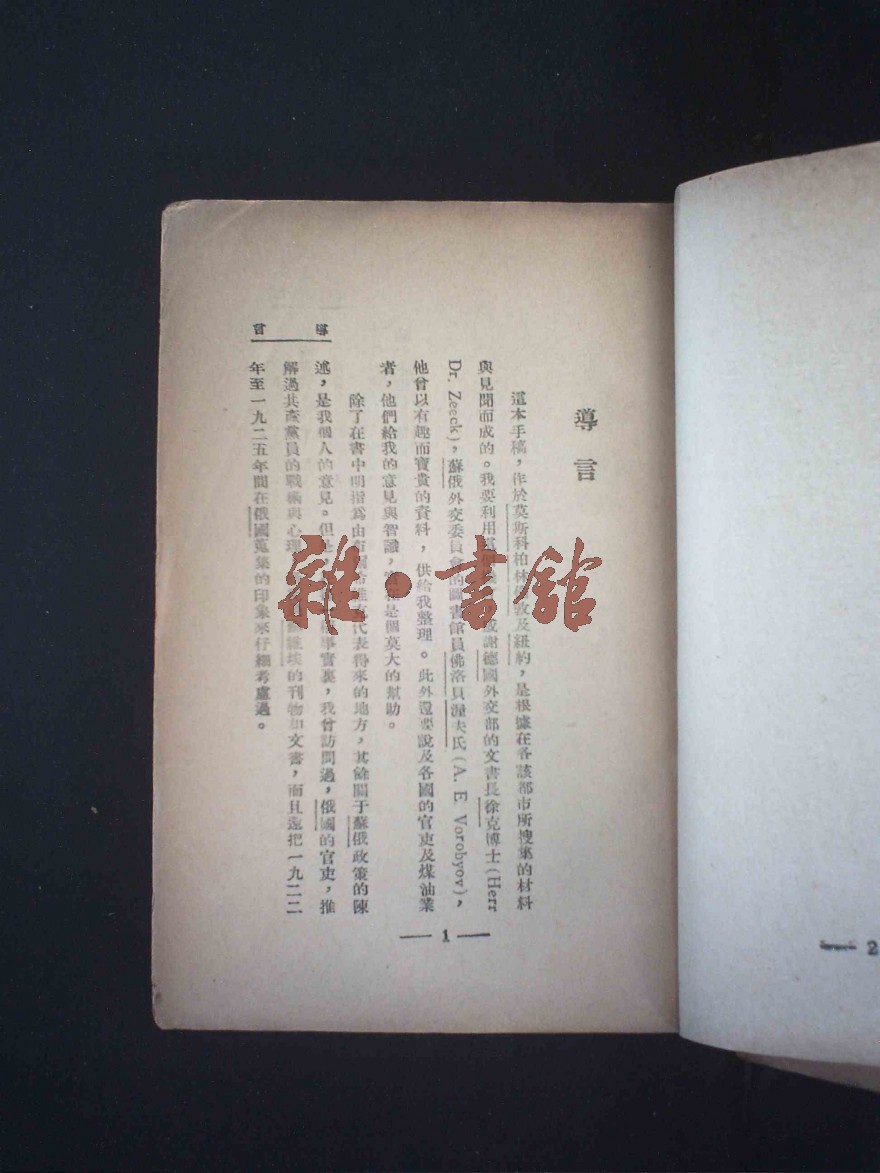 導言
這本手稿，作於莫斯科柏林倫敦及紐約，是根據在各該都市所搜集的材料
與見聞而成的。我要利用 感謝德國外交部的文書長徐克博士(Herr
Dr. Zeeck)，蘇俄外交委員會的圖書館員佛洛貝渥夫氏(A. E. Vorobyov)，
他曾以有趣而寶貴的資料，供給我整理。此外還要說及各國的官吏及煤油業
者，他們給我的意見與智識，實在是個莫大的幫助。
除了在書中明指爲由布爾希維克代表得來的地方，其餘關于蘇俄政策的陳
述，是我個人的意見。但 事實裏，我曾訪問過，俄國的官吏，推
解過共產黨員的戰術與心理 蘇維埃的刊物和文書，而且還把一九二二
年至一九二五年間在俄國蒐集的印象來仔細考慮過。
導言
— 1 —
雜·書館
— 2